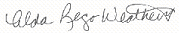 Alda Rego Weathers